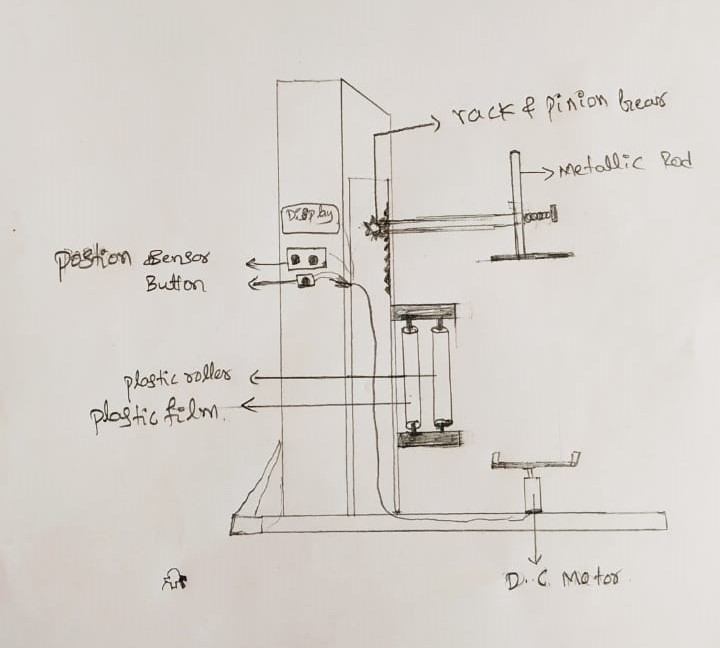 rack & pinion Gear
Metallic Rod
Display
Postion Sensor
Button
plastic roller
plastic film.
D.C. Motor